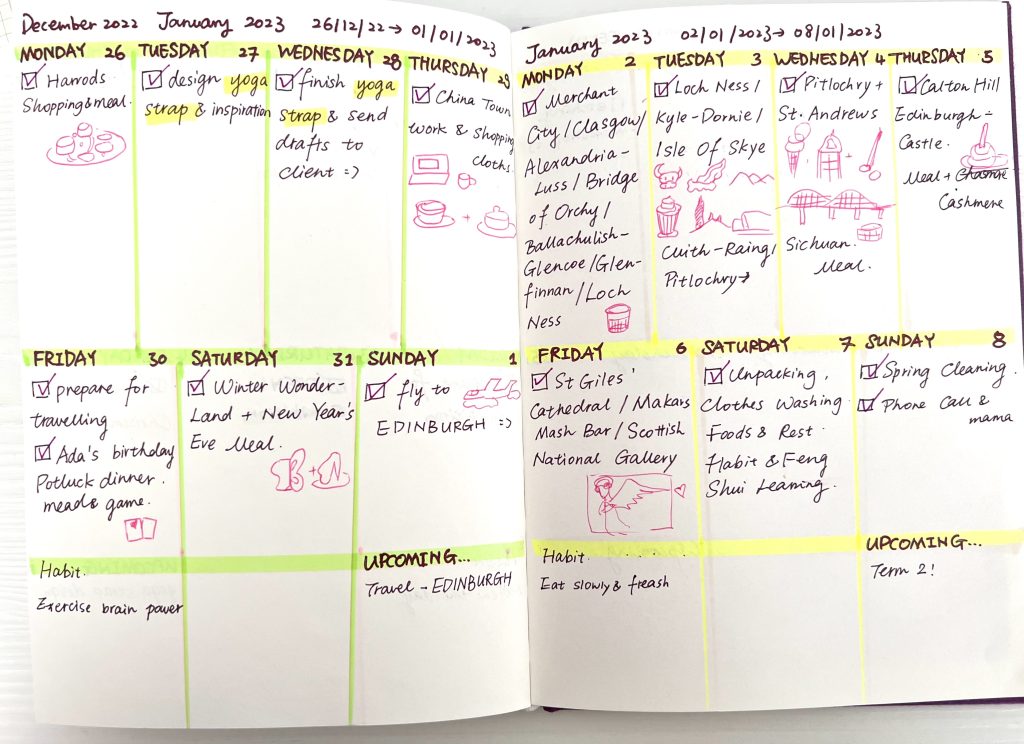 December 2022 January 2023 26/12/22→ 01/01/2023
MONDAY 26
☑ Harrods
Shopping & meal.
TUESDAY 27
☑ design yoga
strap & inspiration
WEDNESDAY 28
☑ finish yoga
strap & send
drafts to
client :)
THURSDAY 29
☑ China Town
work & shopping
cloths.
FRIDAY 30
☑ prepare for
travelling
☑ Ada's birthday
Potluck dinner.
mead & game.
SATURDAY 31
☑ Winter Wonder-
Land + New Year's
Eve Meal.
B + N
SUNDAY 1
☑ fly to
EDINBURGH :)
Habit.
Exercise brain power
UPCOMING...
Travel - EDINBURGH
January 2023 02/01/2023→ 08/01/2023
MONDAY 2
☑ Merchant
City / Clasgow/
Alexandria-
Luss / Bridge
of Orchy /
Ballachulish-
Glencoe/Glen-
finnan / Loch
Ness
TUESDAY 3
☑ Loch Ness /
Kyle-Dornie/
Isle Of Skye
Cuith-Raing/
Pitlochry→
WEDNESDAY 4
☑ Pitlochry +
St. Andrews
Sichuan.
Meal.
THURSDAY 5
☑ Calton Hill
Edinburgh-
Castle.
Meal +
Cashmere
FRIDAY 6
☑ St Giles'
Cathedral / Makars
Mash Bar / Scottish
National Gallery
SATURDAY 7
☑ Unpacking,
Clothes Washing.
Foods & Rest.
Habit & Feng
Shui Leaning.
SUNDAY 8
☑ Spring Cleaning.
☑ Phone Call &
mama
Habit.
Eat slowly & freash
UPCOMING...
Term 2!